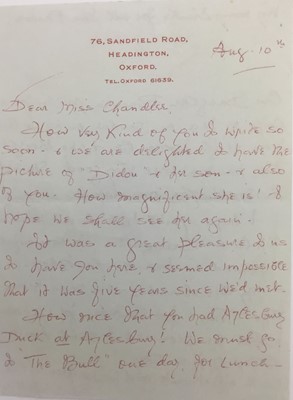 76, SANDFIELD ROAD,
HEADINGTON,
OXFORD.
TEL. OXFORD 61639.
Aug. 10th
Dear Miss Chandler,
How very kind of you to write so
soon - & we are delighted to have the
picture of "Didon" & her son - & also
of you. How magnificent she is! I
hope we shall see her again.
It was a great pleasure to us
to have you here & seemed impossible
that it was five years since we'd met.
How nice that you had Aylesbury
Duck at Aylesbury! We must go
to "The Bull" one day for lunch -